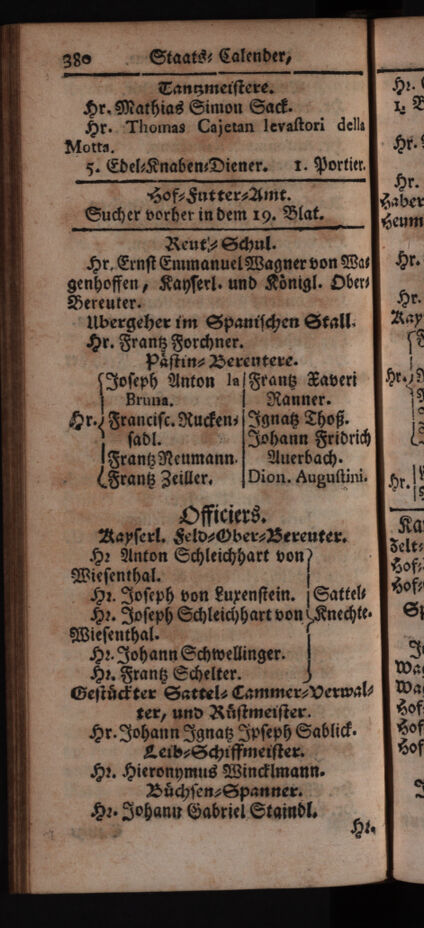 380 Staats-Calender,
Tantzmeistere.
Hr. Mathias Simon Sack.
Hr. Thomas Cajetan levastori della
Motta.
5. Edel-Knaben-Diener. 1. Portier.
Hof-Futter-Amt.
Sucher vorher in dem 19. Blat.
Reut-Schul.
Hr. Ernst Emmanuel Wagner von Wa-
genhoffen, Kayserl. und Königl. Ober-
Bereuter.
Ubergeher im Spanischen Stall.
Hr. Frantz Forchner.
Pästin-Bereutere.
Joseph Anton la Frantz Xaveri
Bruna. Ranner.
Hr. Francisc. Rucken- Ignatz Thoß.
sadl. Johann Fridrich
Frantz Neumann. Auerbach.
Frantz Zeiller. Dion. Augustini.
Officiers.
Kayserl. Feld-Ober-Bereuter.
Hr Anton Schleichhart von
Wiesenthal.
Hr. Joseph von Luxenstein. Sattel-
Hr. Joseph Schleichhart von Knechte.
Wiesenthal.
Hr. Johann Schwellinger.
Hr. Frantz Schelter.
Gestückter Sattel-Cammer-Verwal-
ter, und Rüstmeister.
Hr. Johann Ignatz Jpseph Sablick.
Leib-Schiffmeister.
Hr. Hieronymus Wincklmann.
Büchsen-Spanner.
Hr. Johann Gabriel Staindl.
Hr.